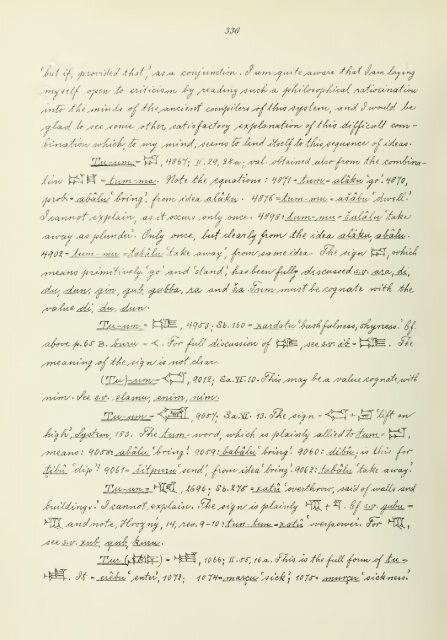 336
'but if, provided that', as a conjunction. I am quite aware that I am laying
myself open to criticism by reading such a philosophical ratiocination
into the minds of the ancient compilers of this system, and I would be
glad to see some other satisfactory explanation of this difficult com-
bination which, to my mind, seems to lend itself to this sequence of ideas.
Tu-um = , 4867; II. 29, 28a; val. obtained also from the combina-
tion = tum-ma. Note the equations: 4871 = tum = alâku 'go'. 4870,
prob. = abâlu 'bring', from idea alâku. 4876 = tum-mu = ašâbu 'dwell'.
I cannot explain, as it occurs only once. 4898: tum-mu = šalâlu 'take
away as plunder'. Only once, but clearly from the idea alâku, abâlu.
4902 = tum-mu = tabâlu 'take away', from same idea. The sign , which
means primitively 'go' and 'stand', has been fully discussed s.v. ara, di,
du, dun, gin, gub, gubba, ra and ša. Tum must be cognate with the
value di, du, dun.
Tu-um = , 4953; Sb. 160 = 'bashfulness, shyness'. Cf.
above p. 65 . For full discussion of , see s.v. . The
meaning of the sign is not clear.
(Tu)-um = , 9018; Sa. VI. 10. This may be a value cognate with
nim. See s.v. elamu, enim, nim.
Tu-um = , 9057; Sa. VI. 13. The sign = + 'lift on
high', System, 183. The tum-word, which is plainly allied to tum = ,
means: 4058: abâlu 'bring'. 9059: babâlu 'bring'. 9060: dibu; is this for
'dip'? 9061 = šitpuru 'send', from idea 'bring'. 9062: tabâlu 'take away'.
Tu-un = , 2696; Sb. 275 = 'overthrow, said of walls and
buildings'. I cannot explain. The sign is plainly + . Cf. s.v. gubu =
and note, Hrozný, 14, rev. 9-10: 'overpower'. For ,
see s.v.
Tur = , 1066; II. 55, 16a. This is the full form of tu =
. It = erêbu 'enter', 1072; 1074 = marçu 'sick'; 1075 = murçu 'sickness'.